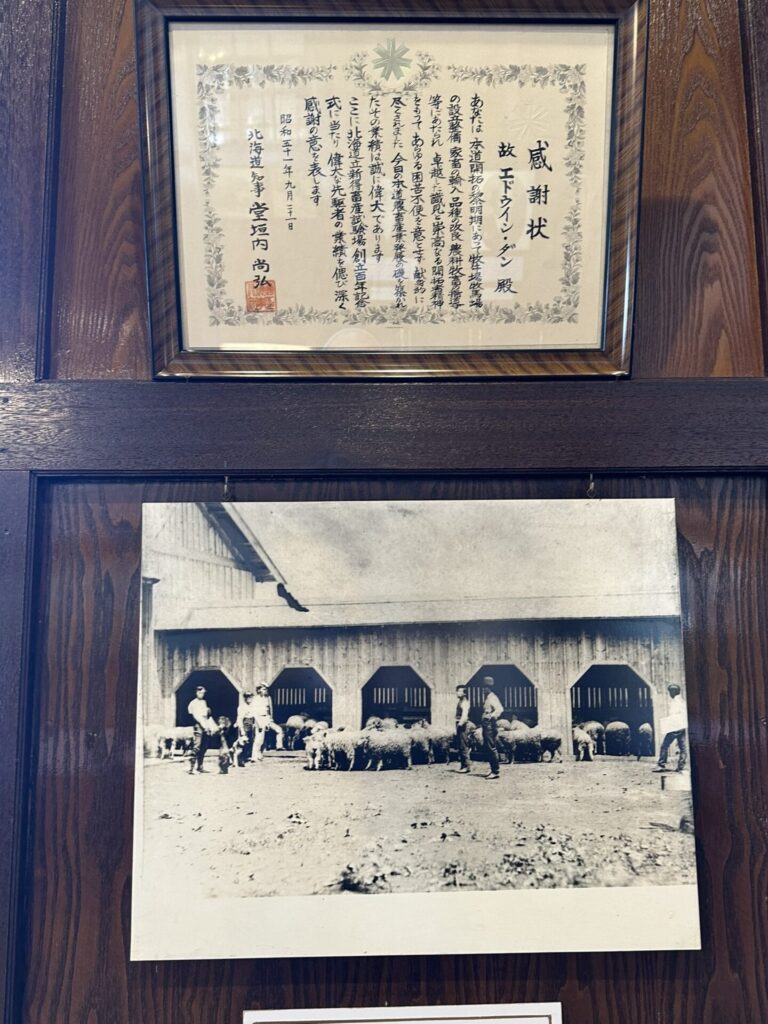 感謝状
故 エドウイン・ダン 殿
あなたは 本道開拓の黎明期にあって 牧牛場牧馬場
の設立整備 家畜の輸入 品種の改良 農耕牧畜の指導
等にあたられ 卓越した識見と崇高なる開拓者精神
をもって あらゆる困苦不便を意とせず 献身的に
尽くされました 今日の本道農畜産業発展の礎を築かれ
たその業績は誠に偉大であります
ここに北海道立新得畜産試験場 創立百年記念
式に当たり 偉大な先駆者の業績を偲び 深く
感謝の意を表します
昭和五十一年九月二十一日
北海道知事 堂垣内 尚弘